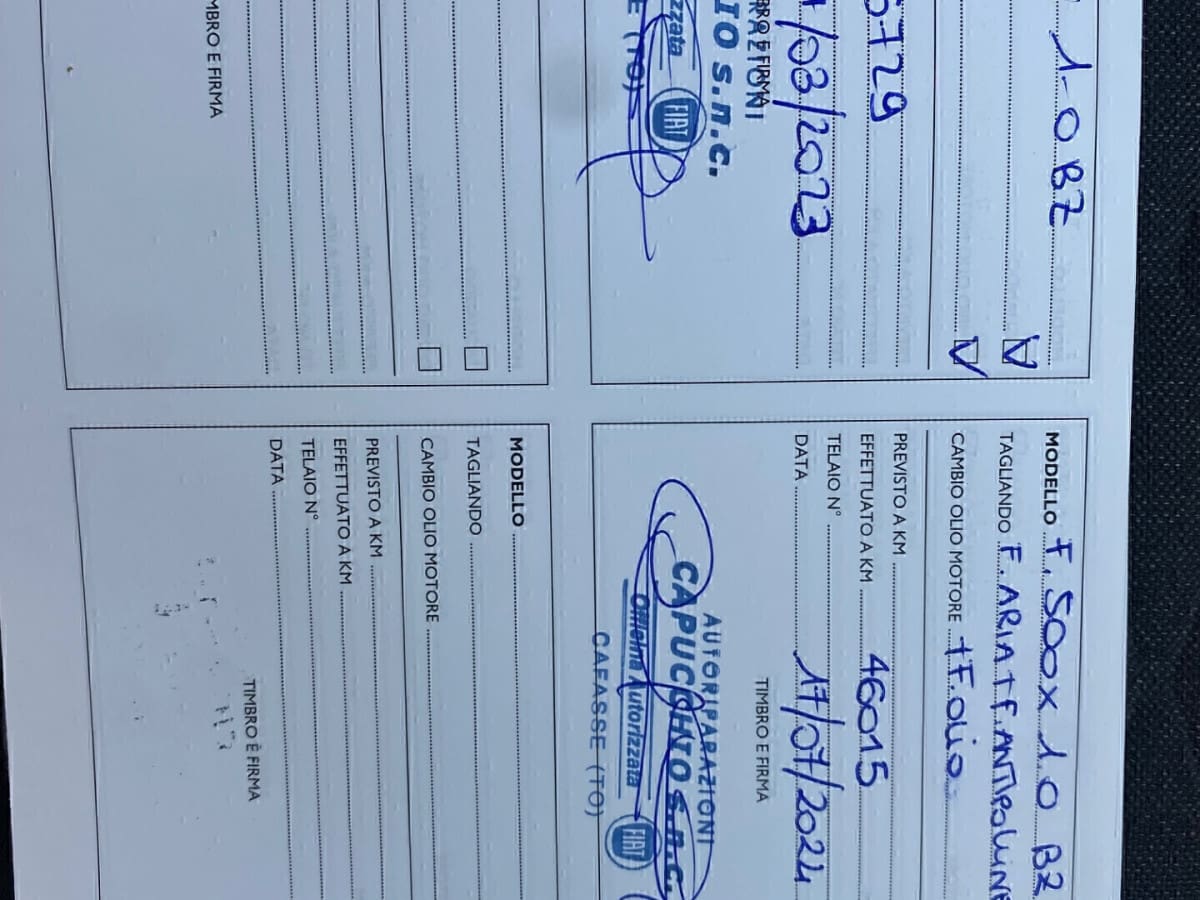 1.0 BZ
V
V
6729
/03/2023
BRO E FIRMA
RAZIONI
IO s.n.c.
zzata
FIAT
E (TO)
MODELLO F. 500X 1.0 BZ
TAGLIANDO F. ARIA + F. ANTIPOLLINE
CAMBIO OLIO MOTORE + F. OLIO
PREVISTO A KM
EFFETTUATO A KM 46015
TELAIO N°
DATA 17/07/2024
TIMBRO E FIRMA
AUTORIPARAZIONI
CAPUCCHIO s.n.c.
Officina Autorizzata
FIAT
CAFASSE (TO)
MBRO E FIRMA
MODELLO
TAGLIANDO
CAMBIO OLIO MOTORE
PREVISTO A KM
EFFETTUATO A KM
TELAIO N°
DATA
TIMBRO E FIRMA